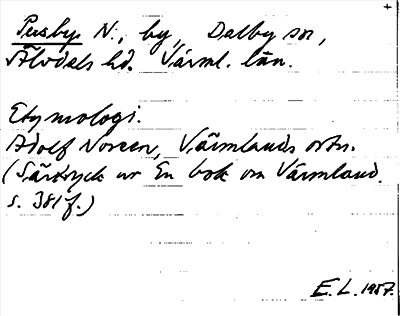 +
Pusbyn N., by, Dalby sn,
Älvdals hd. Värml. län.
Etymologi.
Adolf Noreen, Värmlands ortn.
(Särtryck ur En bok om Värmland.
s. 381 f.)
E.L. 1957.